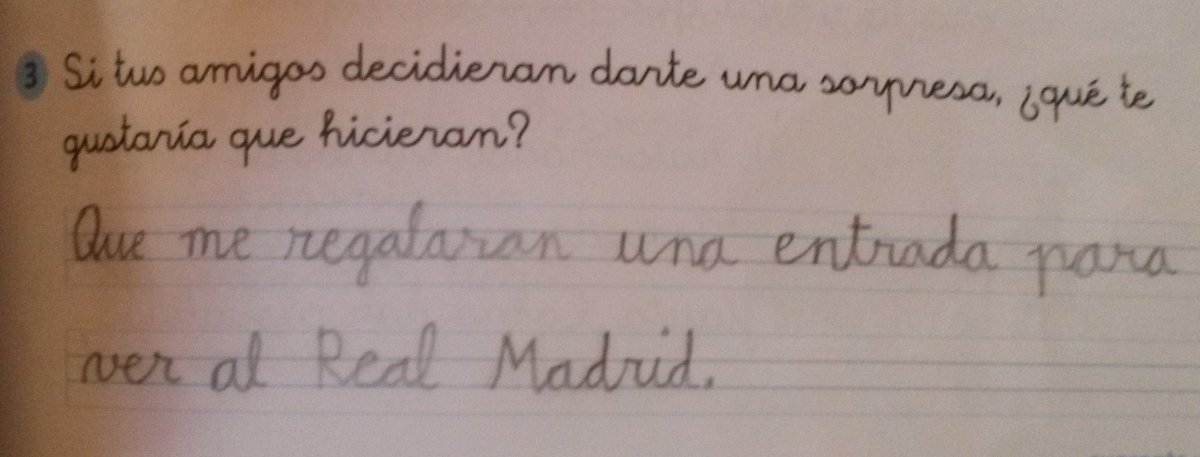 3 Si tus amigos decidieran darte una sorpresa, ¿qué te
gustaría que hicieran?
Que me regalaran una entrada para
ver al Real Madrid.